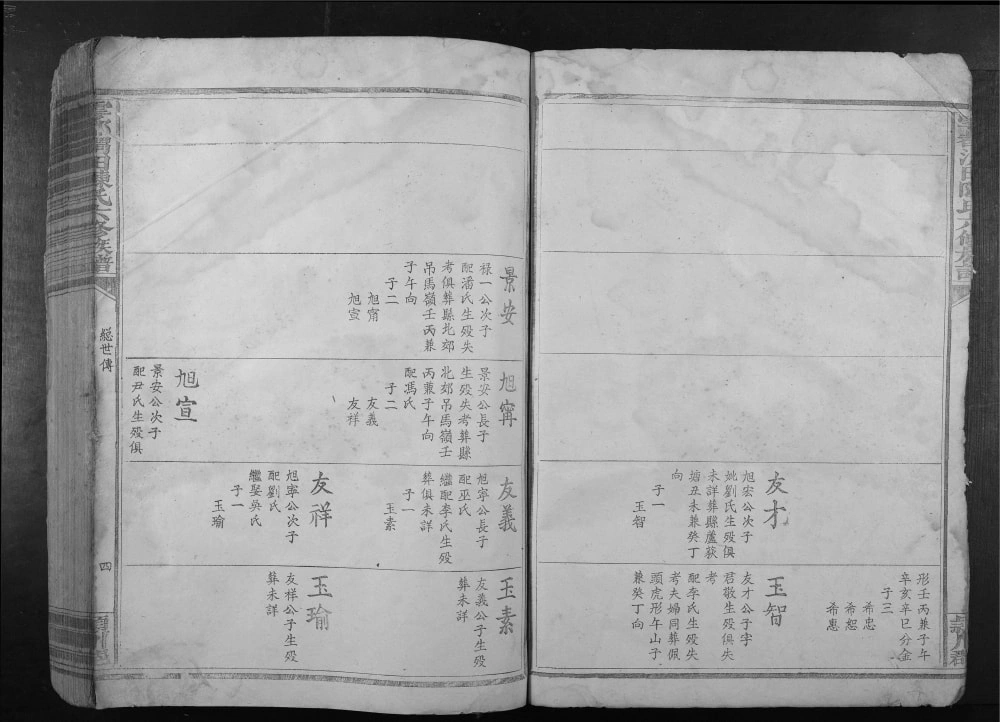 形壬丙兼子午
辛亥辛巳分金
子三
希忠
希恕
希惠
友才
旭宏公次子
妣劉氏生殁俱
未詳葬縣蘆荻
塘丑未兼癸丁
向
子一
玉智
玉智
友才公子字
君敬生殁俱失
考
配李氏生殁失
考夫婦同葬佩
頭虎形午山子
兼癸丁向
景安
禄一公次子
配潘氏生殁失
考俱葬縣北郊
吊馬嶺壬丙兼
子午向
子二
旭甯
旭宣
旭甯
景安公長子
生殁失考葬縣
北郊吊馬嶺壬
丙兼子午向
配馮氏
子二
友義
友祥
旭宣
景安公次子
配尹氏生殁俱
友義
旭寧公長子
配巫氏
繼配李氏生殁
葬俱未詳
子一
玉素
友祥
旭寧公次子
配劉氏
繼娶吳氏
子一
玉瑜
玉素
友義公子生殁
葬未詳
玉瑜
友祥公子生殁
葬未詳
總世傳
四